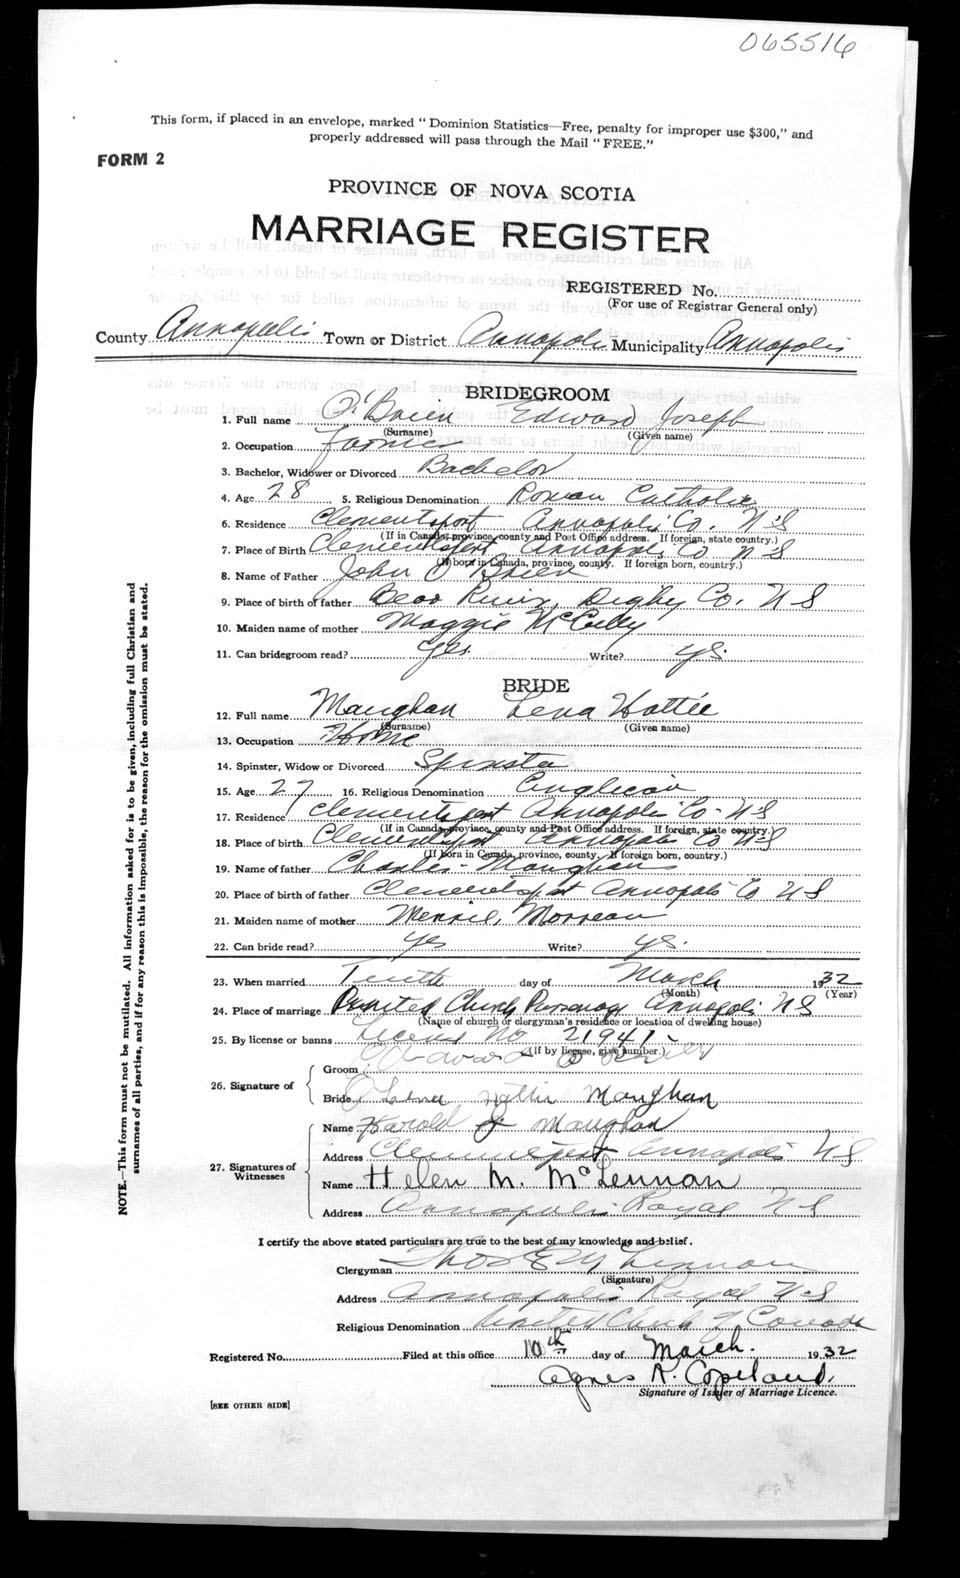 065516
This form, if placed in an envelope, marked "Dominion Statistics—Free, penalty for improper use $300," and
properly addressed will pass through the Mail "FREE."
FORM 2
PROVINCE OF NOVA SCOTIA
MARRIAGE REGISTER
REGISTERED No.
(For use of Registrar General only)
County Annapolis Town or District Annapolis Municipality Annapolis
BRIDEGROOM
1. Full name O'Brien Edward Joseph
(Surname) (Given name)
2. Occupation Farmer
3. Bachelor, Widower or Divorced Bachelor
4. Age 28 5. Religious Denomination Roman Catholic
6. Residence Clementsport Annapolis Co. N S
(If in Canada, province, county and Post Office address. If foreign, state country.)
7. Place of Birth Clementsport Annapolis Co N S
(If born in Canada, province, county. If foreign born, country.)
8. Name of Father John O'Brien
9. Place of birth of father Bear River, Digby Co. N S
10. Maiden name of mother Maggie McCully
11. Can bridegroom read? Yes. Write? Ys.
BRIDE
12. Full name Maughan Lena Hattie
(Surname) (Given name)
13. Occupation Home
14. Spinster, Widow or Divorced Spinster
15. Age 27 16. Religious Denomination Anglican
17. Residence Clementsport Annapolis Co. N S
(If in Canada, province, county and Post Office address. If foreign, state country.)
18. Place of birth Clementsport Annapolis Co N S
(If born in Canada, province, county. If foreign born, country.)
19. Name of father Charles Maughan
20. Place of birth of father Clementsport Annapolis Co N S
21. Maiden name of mother Morreau
22. Can bride read? Yes Write? Ys.
23. When married Tenth day of March 1932
(Month) (Year)
24. Place of marriage United Church Parsonage Annapolis N S
(Name of church or clergyman's residence or location of dwelling house)
25. By license or banns License No 21941
(If by license, give number.)
26. Signature of
Groom Edward O'Brien
Bride Lena Hattie Maughan
27. Signatures of Witnesses
Name Harold Maughan
Address Clementsport Annapolis N S
Name Helen M. McLennan
Address Annapolis Royal N S
I certify the above stated particulars are true to the best of my knowledge and belief.
Clergyman Thos McLennan
(Signature)
Address Annapolis Royal N S
Religious Denomination United Church of Canada
Registered No. Filed at this office 10th day of March. 1932
Agnes K. Copeland.
Signature of Issuer of Marriage Licence.
[SEE OTHER SIDE]
NOTE.—This form must not be mutilated. All information asked for is to be given, including full Christian and
surnames of all parties, and if for any reason this is impossible, the reason for the omission must be stated.